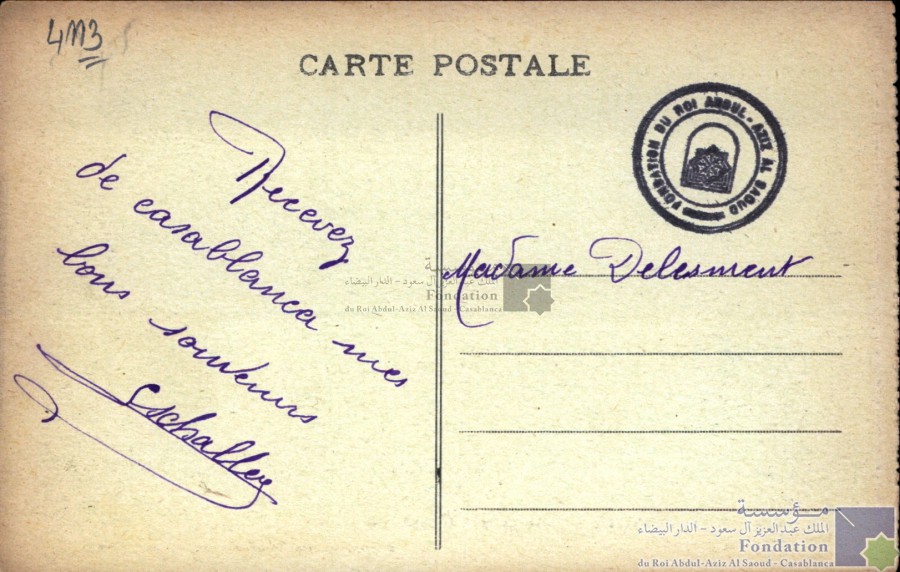 4113
CARTE POSTALE
Recevez
de casablanca mes
bons souvenirs
FONDATION DU ROI ABDUL-AZIZ AL SAOUD
Madame Delesment
مؤسسة
الملك عبدالعزيز آل سعود - الدار البيضاء
Fondation
du Roi Abdul-Aziz Al Saoud - Casablanca
مؤسسة
الملك عبدالعزيز آل سعود - الدار البيضاء
Fondation
du Roi Abdul-Aziz Al Saoud - Casablanca